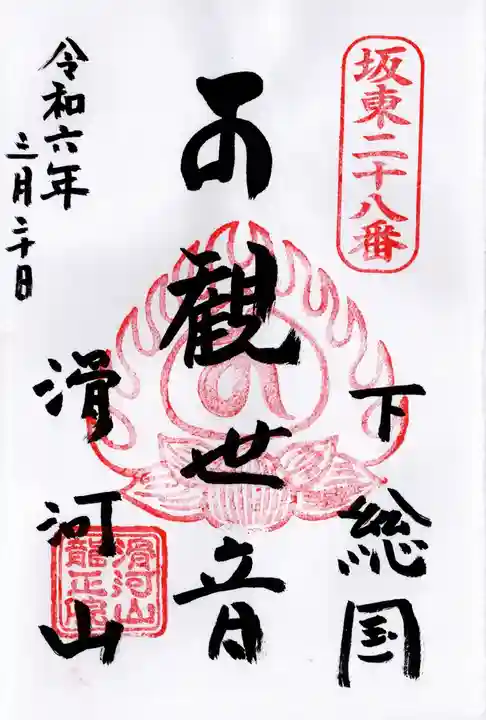 坂東二十八番
下総国
観世音
滑河山
令和六年
三月二十日
滑河山
龍正院